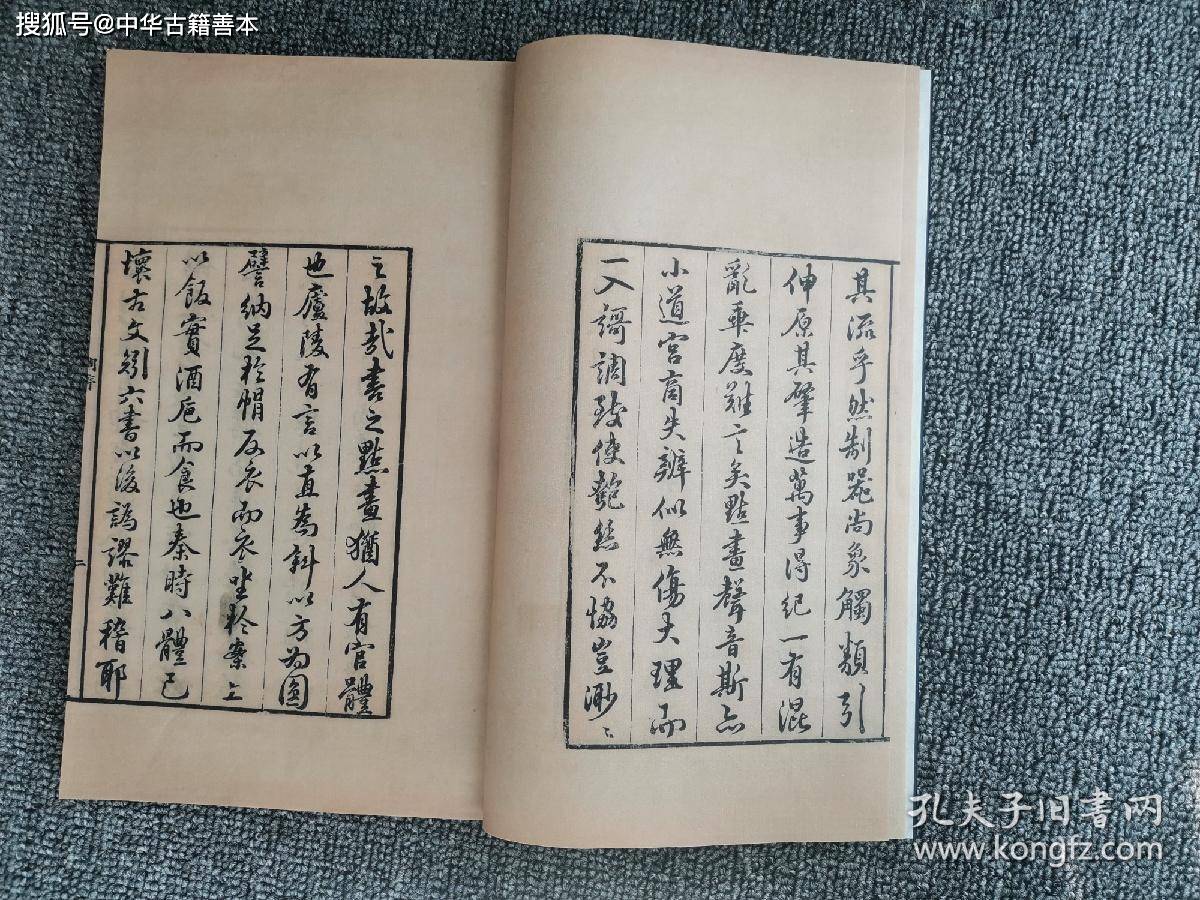 搜狐号@中华古籍善本
其流乎然制器尚象觸類引
伸原其肇造萬事得紀一有混
亂乖度難言矣點畫聲音斯亦
小道宮商失辨似無傷大理而
一入謌調致使乾絲不協豈渺〻
之故哉書之點畫猶人有官體
也廬陵有言以直為斜以方為圓
譬納足於帽反衣而衣坐於案上
以飯實酒巵而食也秦時八體已
壞古文矧六書以後譌謬難稽耶
二
孔夫子旧书网
www.kongfz.com